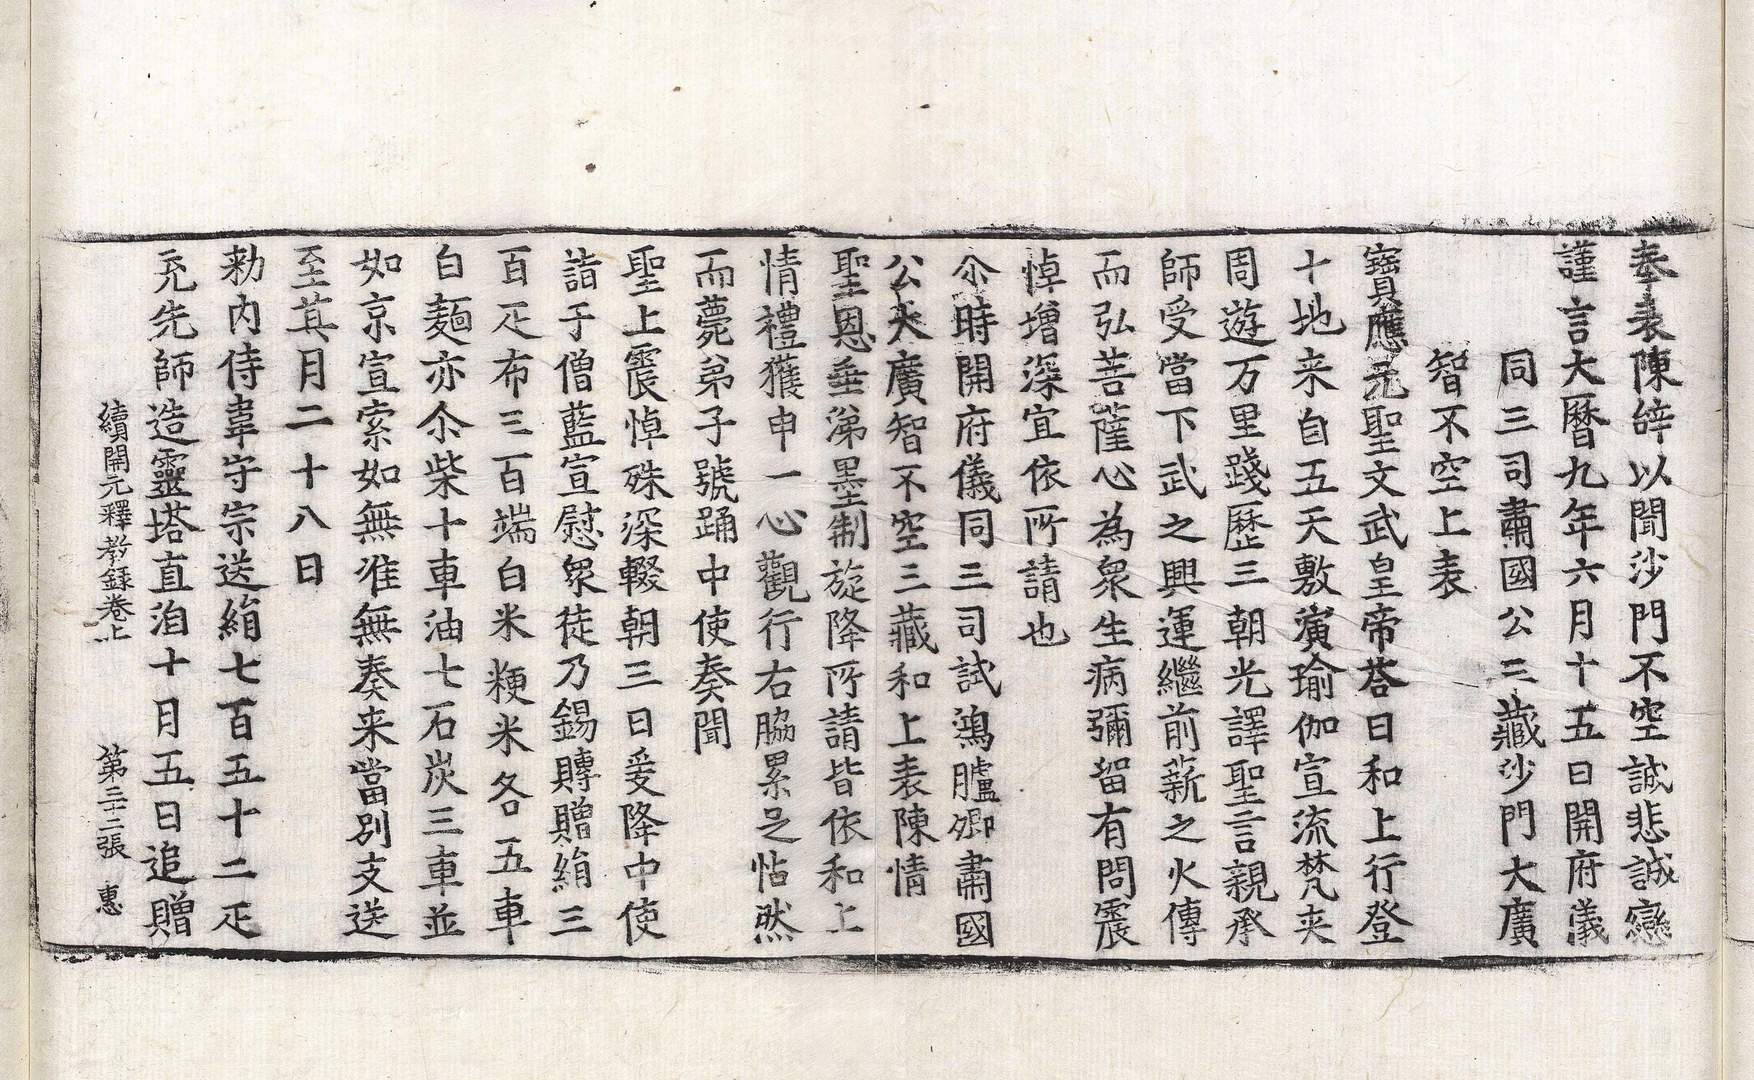 奉表陳辞以聞沙門不空誠悲誠戀
謹言大曆九年六月十五日開府儀
同三司肅國公三藏沙門大廣
智不空上表
寶應元聖文武皇帝荅曰和上行登
十地来自五天敷演瑜伽宣流梵夹
周遊万里踐歷三朝光譯聖言親承
師受當下武之興運繼前薪之火傳
而弘菩薩心為衆生病彌留有問震
悼增深宜依所請也
尒時開府儀同三司試鴻臚卿肅國
公大廣智不空三藏和上表陳情
聖恩垂涕墨制旋降所請皆依和上
情禮獲申一心觀行右脇累足怗然
而薨弟子號踊中使奏聞
聖上震悼殊深輟朝三日爰降中使
詣于僧藍宣慰衆徒乃錫賻贈絹三
百疋布三百端白米粳米各五車
白麵亦尒柴十車油七石炭三車並
如京宣索如無准無奏来當别支送
至其月二十八日
勑内侍韋守宗送絹七百五十二疋
充先師造靈塔直洎十月五日追贈
續開元釋教録卷上 第二十二張 惠